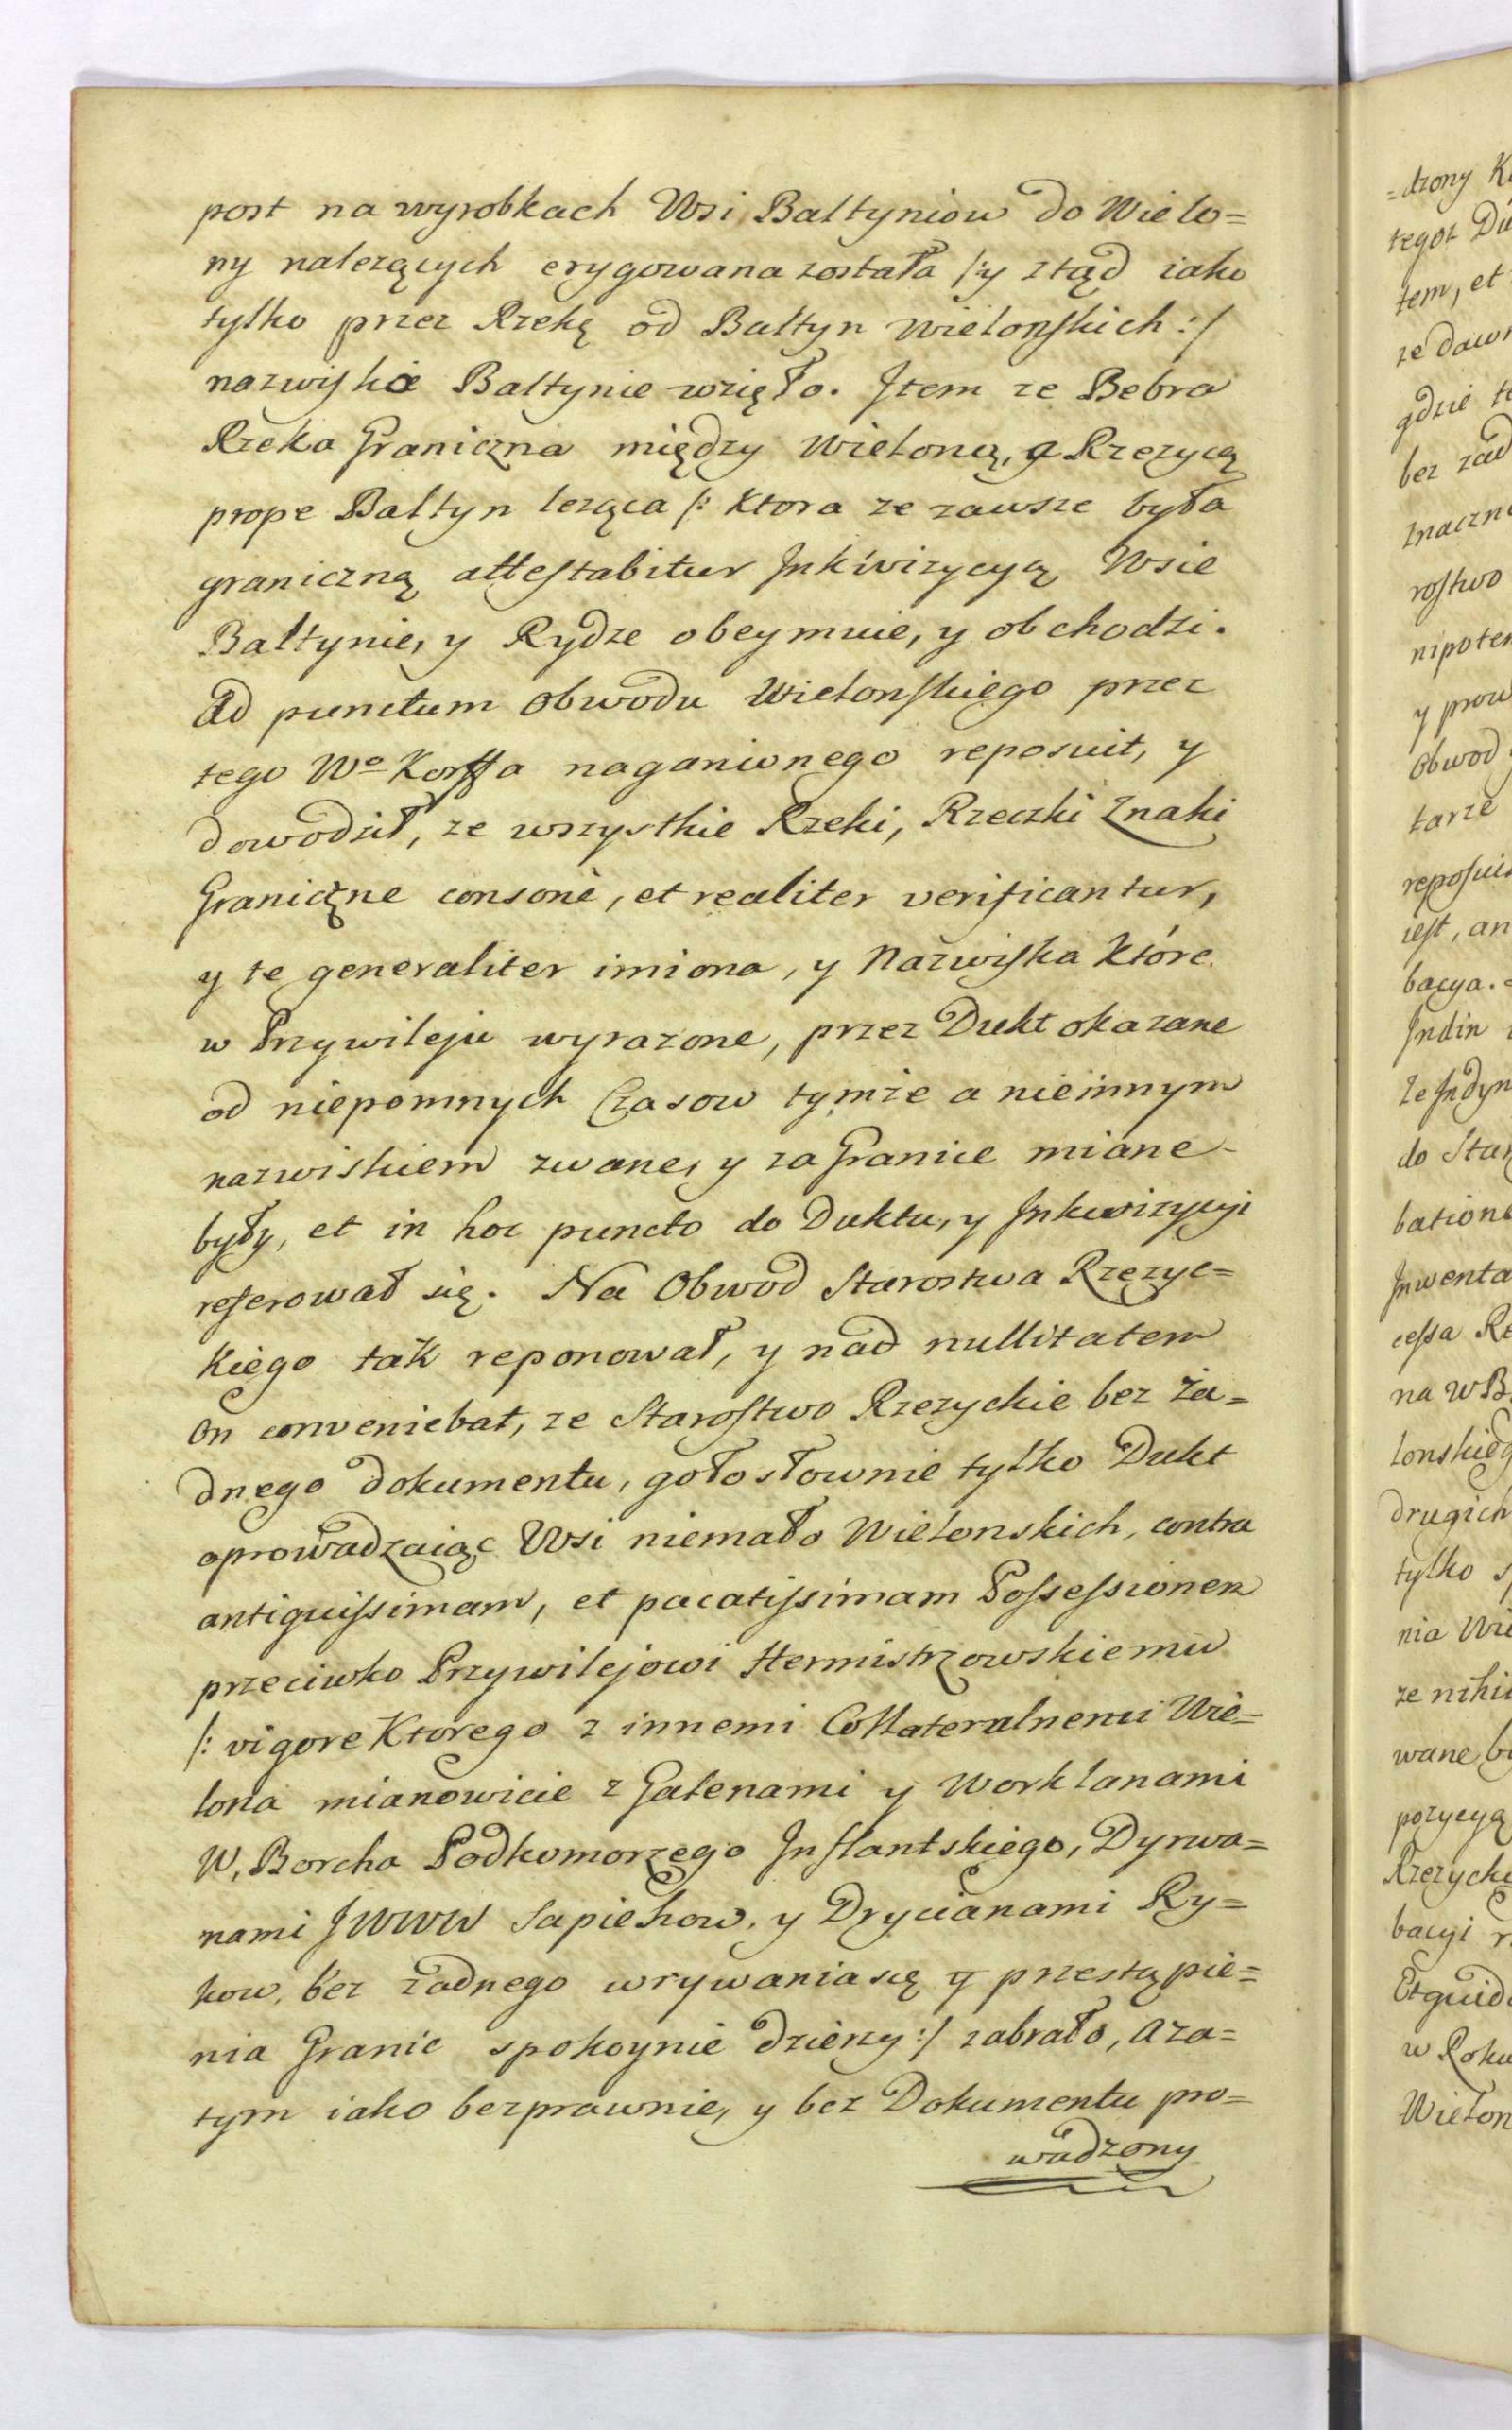 post na wyrobkach Wsi Baltyniow do Wielo=
ny nalezących erygowana została /:y ztąd iako
tylko przez Rzekę od Baltyn Wielonskich:/
nazwisko Baltynie wzięło. Item ze Bebra
Rzeka Graniczna między Wieloną, a Rzezycą
prope Baltyn leząca /: Ktora ze zawsze była
graniczną attestabitur Inkwizycyą Wsie
Baltynie, y Rydze obeymuie, y obchodzi.
Ad punctum Obwodu Wielonskiego przez
tego Wo Korffa naganionego reposuit, y
dowodził, ze wszystkie Rzeki, Rzeczki Znaki
Graniczne consonè, et realiter verificantur,
y te generaliter imiona, y Nazwiska Które
w Przywileju wyrazone, przez Dukt okazane
od niepomnych Czasow tymże a nieinnym
nazwiskiem zwane, y za Granice miane
były, et in hoc puncto do Duktu, y Inkwizycyi
referował się. Na Obwod Starostwa Rzezyc=
kiego tak reponował, y nad nullitatem
On conveniebat, ze Starostwo Rzezyckie bez Ża=
dnego dokumentu, gołosłownie tylko Dukt
oprowadzaiąc Wsi niemało Wielonskich, contra
antiquissimam, et pacatissimam Possessionem
przeciwko Przywilejowi Hermistrzowskiemu
/: vigore Ktorego z innemi Collateralnemi Wie=
lona mianowicie z Galenami y Worklanami
W, Borcha Podkomorzego Inflantskiego, Dyrwa=
nami JWWW Sapiehow, y Drycianami Ry=
kow, bez żadnego wrywania się y przestąpie=
nia Granic spokoynie dzierzy:/ zabrało, a za=
tym iako bezprawnie, y bez Dokumentu pro=
wadzony
=dzony
tegoz
tem, et
ze
gdzie
bez
Znaczn
rostwo
nipoten
y
Obwod
tarze
iest, an
bacya.
Indin
do
Inwenta
cessa
na
drugich
tylko
nia
ze
wane
pozycyą
Rzezyck
bacyi
w Roku
Wielon